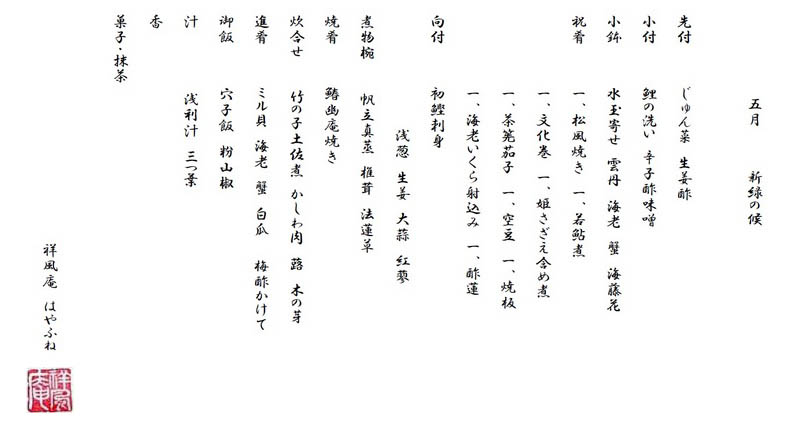 五月　新緑の候
先付　じゅん菜　生姜酢
小付　鯉の洗い　辛子酢味噌
小鉢　水玉寄せ　雲丹　海老　蟹　海藤花
祝肴　一、松風焼き　一、若鮎煮
一、文化巻　一、姫さざえ含め煮
一、茶筅茄子　一、空豆　一、焼板
一、海老いくら射込み　一、酢蓮
向付　初鰹刺身
浅葱　生姜　大蒜　紅蓼
煮物椀　帆立真蒸　椎茸　法蓮草
焼肴　鰆幽庵焼き
炊合せ　竹の子土佐煮　かしわ肉　蕗　木の芽
進肴　ミル貝　海老　蟹　白瓜　梅酢かけて
御飯　穴子飯　粉山椒
汁　浅利汁　三つ葉
香
菓子・抹茶
祥風庵　はやふね
祥風庵